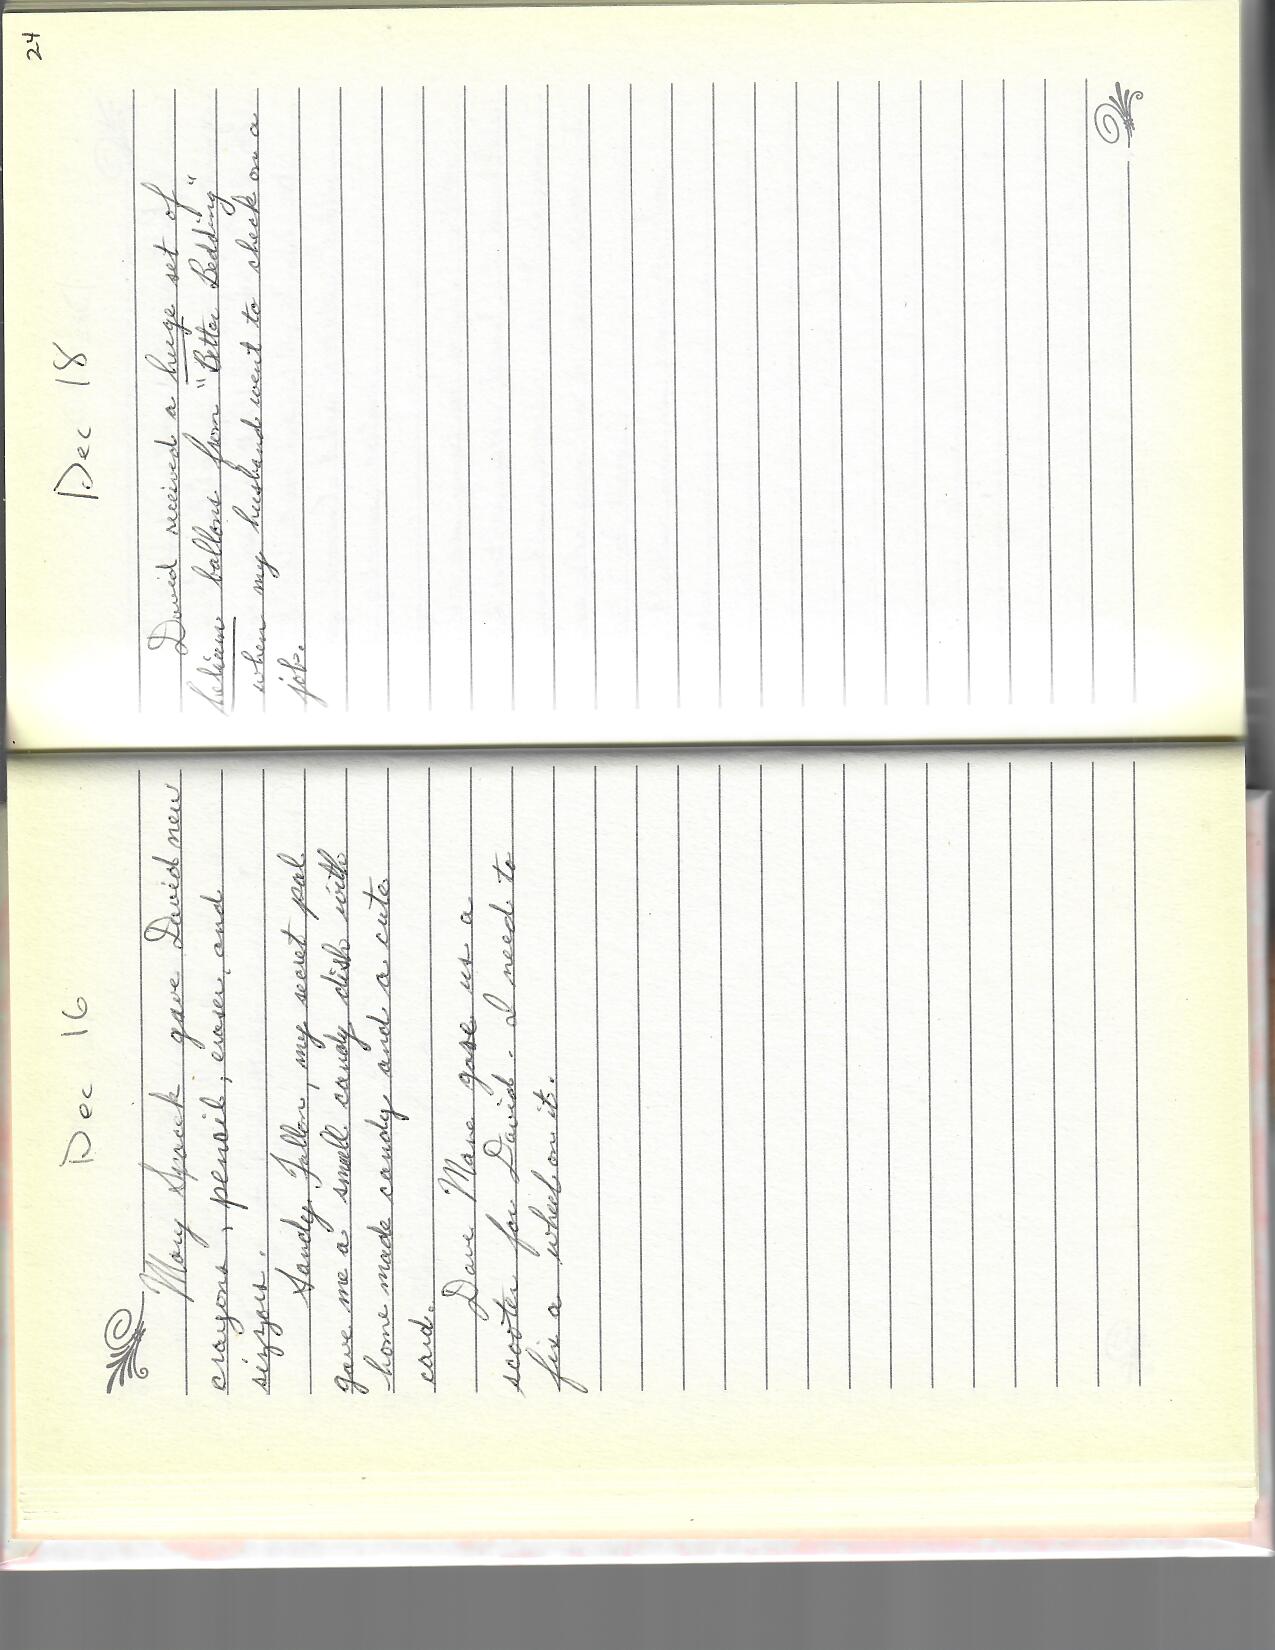 Dec 16
Mary Spack gave David new
crayons, pencil, eraser, and
sizzors.
Sandy Fallon, my secret pal
gave me a small candy dish with
home made candy and a cute
card.
Dave Mane gave us a
scooter for David. I need to
fix a wheel on it.
24
Dec 18
David received a huge set of
helium ballons from "Better Bedding"
when my husband went to check on a
job.